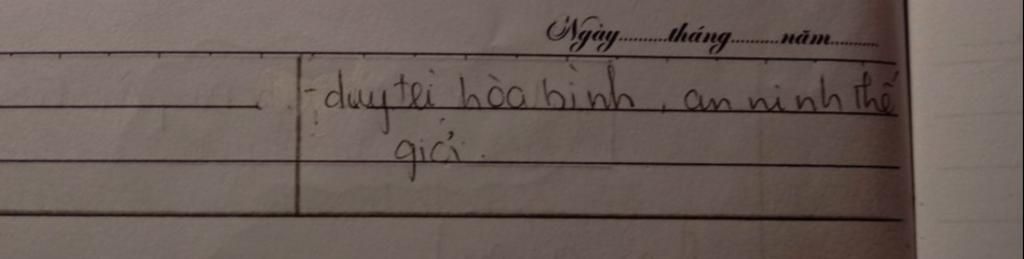 Ngày.........tháng.........năm..........
- duy tri hòa bình, an ninh thế
giới.